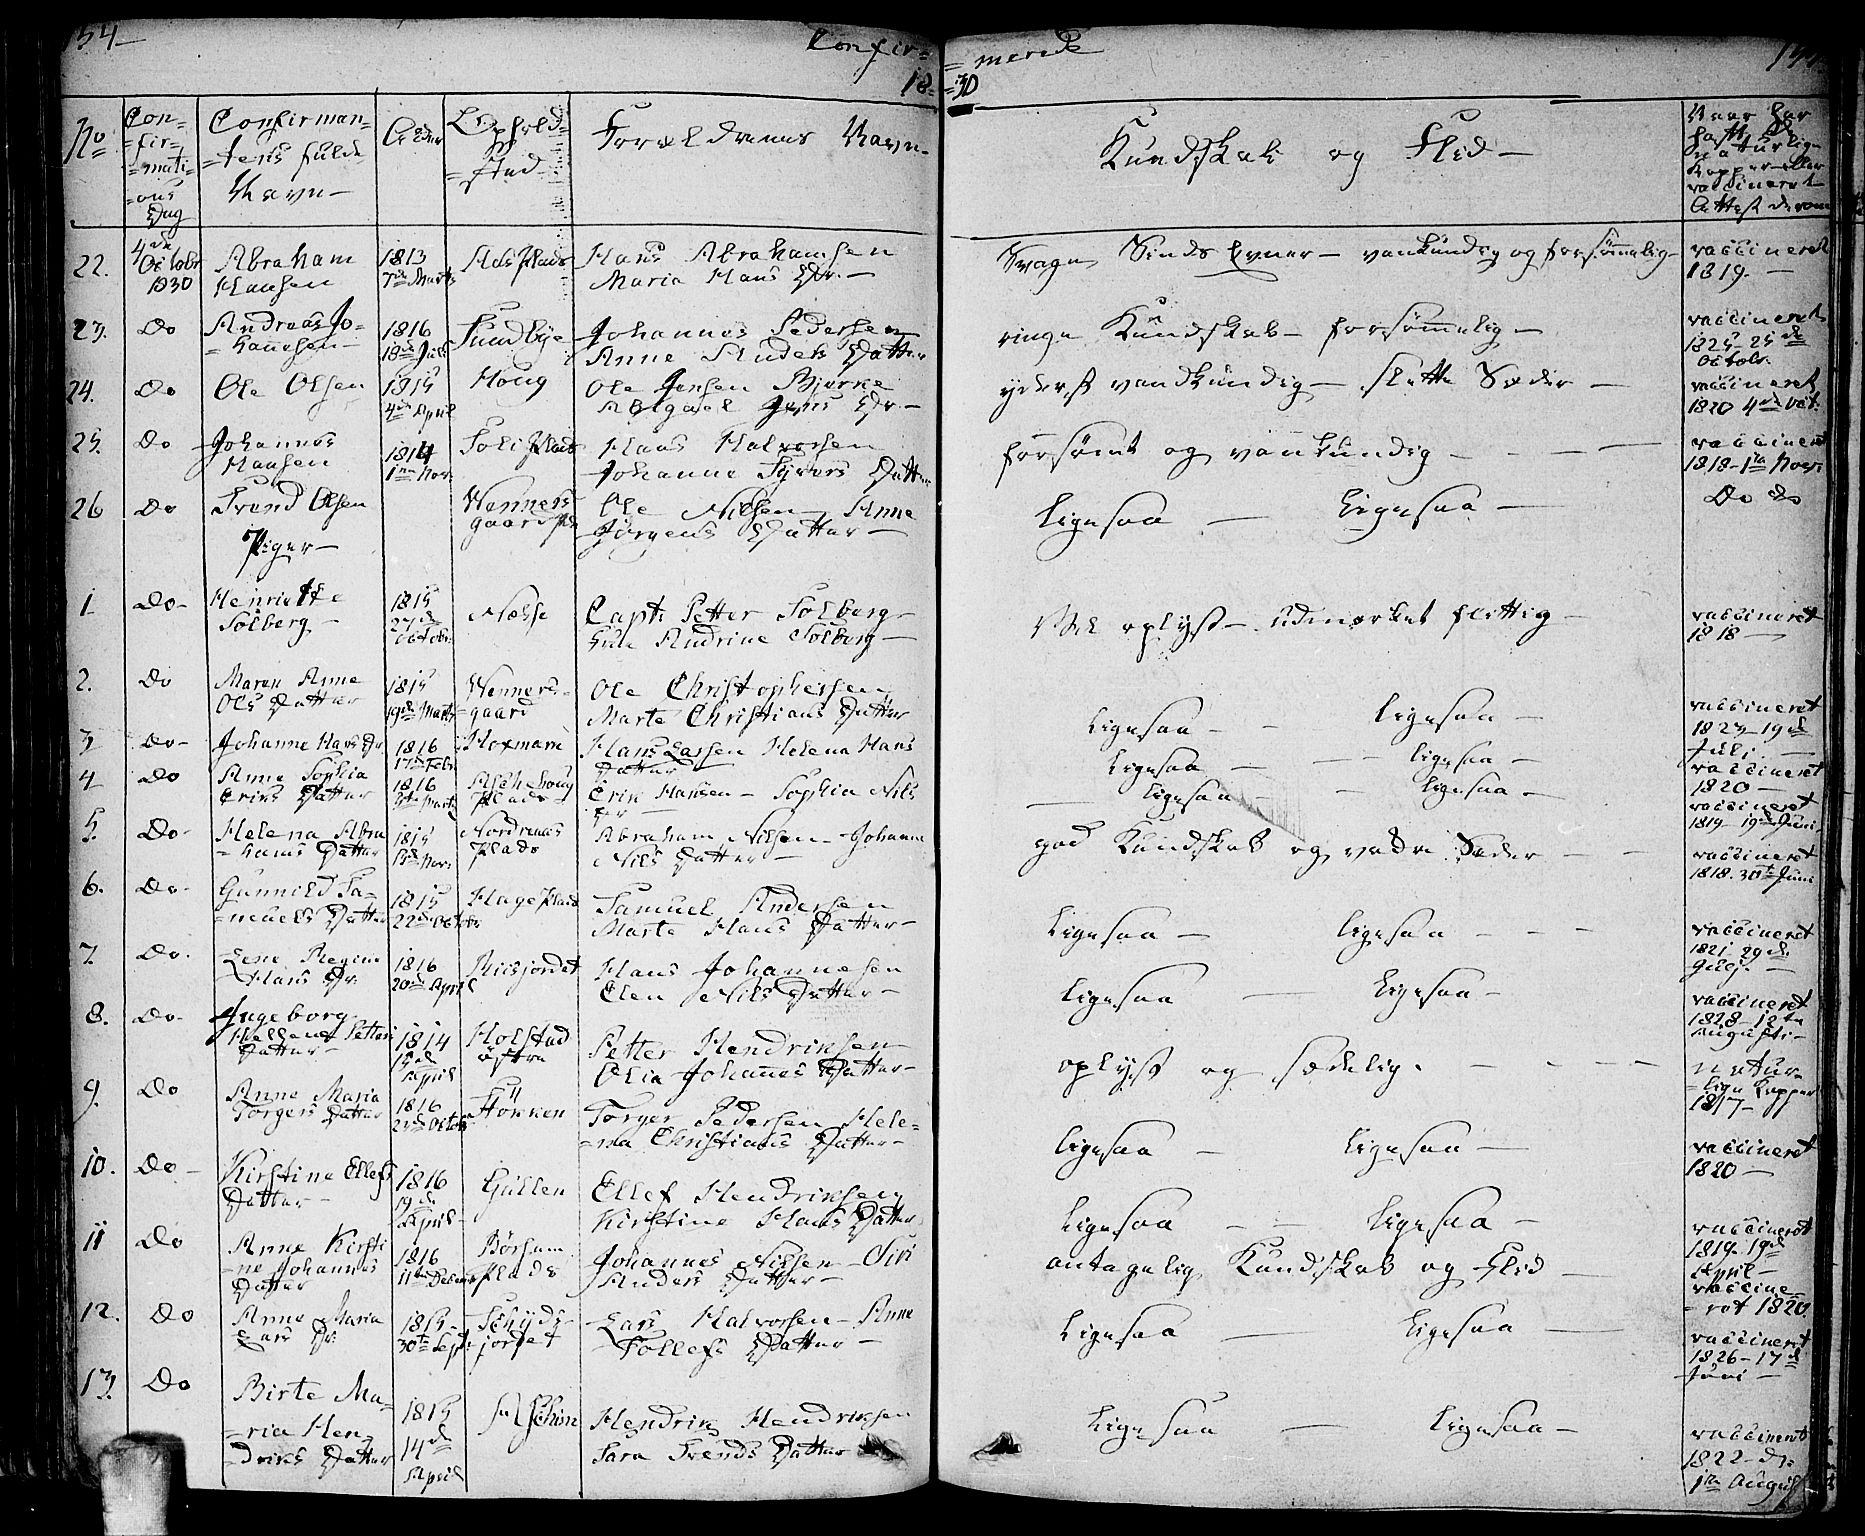 154
Confir=
=merede
18=
=30
No
Con=
=fir=
=mati=
=ons
Dag
Confirman=
=tens fulde
Navn
Alder
Ophold=
=sted
Forældrenes Navn
Kundskab og Flid
Naar har
haft de
naturlige
Kopper eller
vaccineret
Attest derom
22. 4de October 1830 Abraham Hansen 1813 7de Marts Aas Plads Hans Abrahamsen Maria Hans Dr. Svage Sinds Evner - vankundig og forsømmelig vaccineret 1819.
23. Do Andreas Jo=hannesen 1816 18de Juli Sundbye Johannes Pedersen Anne Anders Datter ringe Kundskab - forsømmelig vaccineret 1825 - 25de Octobr.
24. Do Ole Olsen 1815 4de April Houg Ole Jensen Bjerke Abigael Jens Dr. yderst vandkundig - slette Sæder vaccineret 1820 4de Oct.
25. Do Johannes Hansen 1814 1ste Nov. Soli Plads Hans Halvorsen Johanne Syvers Datter forsømt og vankundig vaccineret 1818 - 1ste Nov.
26 Do Svend Olsen Wenners gaard Pls Ole Nilsen Anne Jørgens Datter Ligesaa - Ligesaa Do do
Piger
1 Do Henriette Solberg 1815 27de October Næsse Capt. Petter Solberg Andrine Solberg Vel oplyst - udmærket flittig vaccineret 1818
2. Do Maren Anne Ols Datter 1815 19de Marts Wenners=gaard Ole Christophersen Marte Christians Datter Ligesaa - Ligesaa vaccineret 1823 - 19de Juli
3 Do Johanne Hans Dr 1816 17de Febr. Hoxmark Hans Larsen Helena Hans Datter Ligesaa - Ligesaa vaccineret 1820
4 Do Anne Sophia Eriks Datter 1816 Marts Aschehoug Plads Erik Hansen - Sophia Nils Dr Ligesaa - Ligesaa vaccineret 1819 - 19de Juni
5. Do Helena Abra=hams Datter 1815 13de Nov. Nordraaks Plads Abraham Nilsen - Johanne Nils Datter god Kundskab og vakre Sæder vaccineret 1818. 30te Juni
6. Do Gunnild Sa=muels Datter 1815 22de October Hage Plads Samuel Andersen Marte Hans Datter Ligesaa - Ligesaa vaccineret 1821 29de Julj.
7. Do. Lene Regine Hans Dr. 1816 20de April Riisjordet Hans Johannesen Elen Nils Datter Ligesaa - Ligesaa vaccineret 1828 - 12te Augusti
8. Do Ingeborg Petters Datter 1814 15de April Holstad østre Petter Hendriksen Olia Johannes Datter oplyst og sædelig. natur=lige Kopper 1817
9. Do Anne Maria Torgers Datter 1816 October Støkken Torger Pedersen Hele=na Christians Datter Ligesaa - Ligesaa vaccineret 1820
10. Do Kirstine Ellefs Datter 1816 19de April Gullen Ellef Hendriksen Kirstine Hans Datter Ligesaa - Ligesaa vaccineret 1819 19de April
11 Do Anne Kirsti=ne Johannes Datter 1816 11te Decembr Børsum Plads Johannes Nilsen - Siri Anders Datter antagelig Kundskab og Flid vaccine=ret 1820.
12. Do Anne Maria Lars Dr. 1815 30te Sept. Schydsjordet Lars Halvorsen - Anne Tollefs Datter Ligesaa - Ligesaa vaccineret 1826 - 17de Juni
13. Do Birte Ma=ria Hen=driks Datter 1815 14de April Hendrik Hendriksen Sara Svends Datter Ligesaa - Ligesaa vaccineret 1822 - d. 1ste August